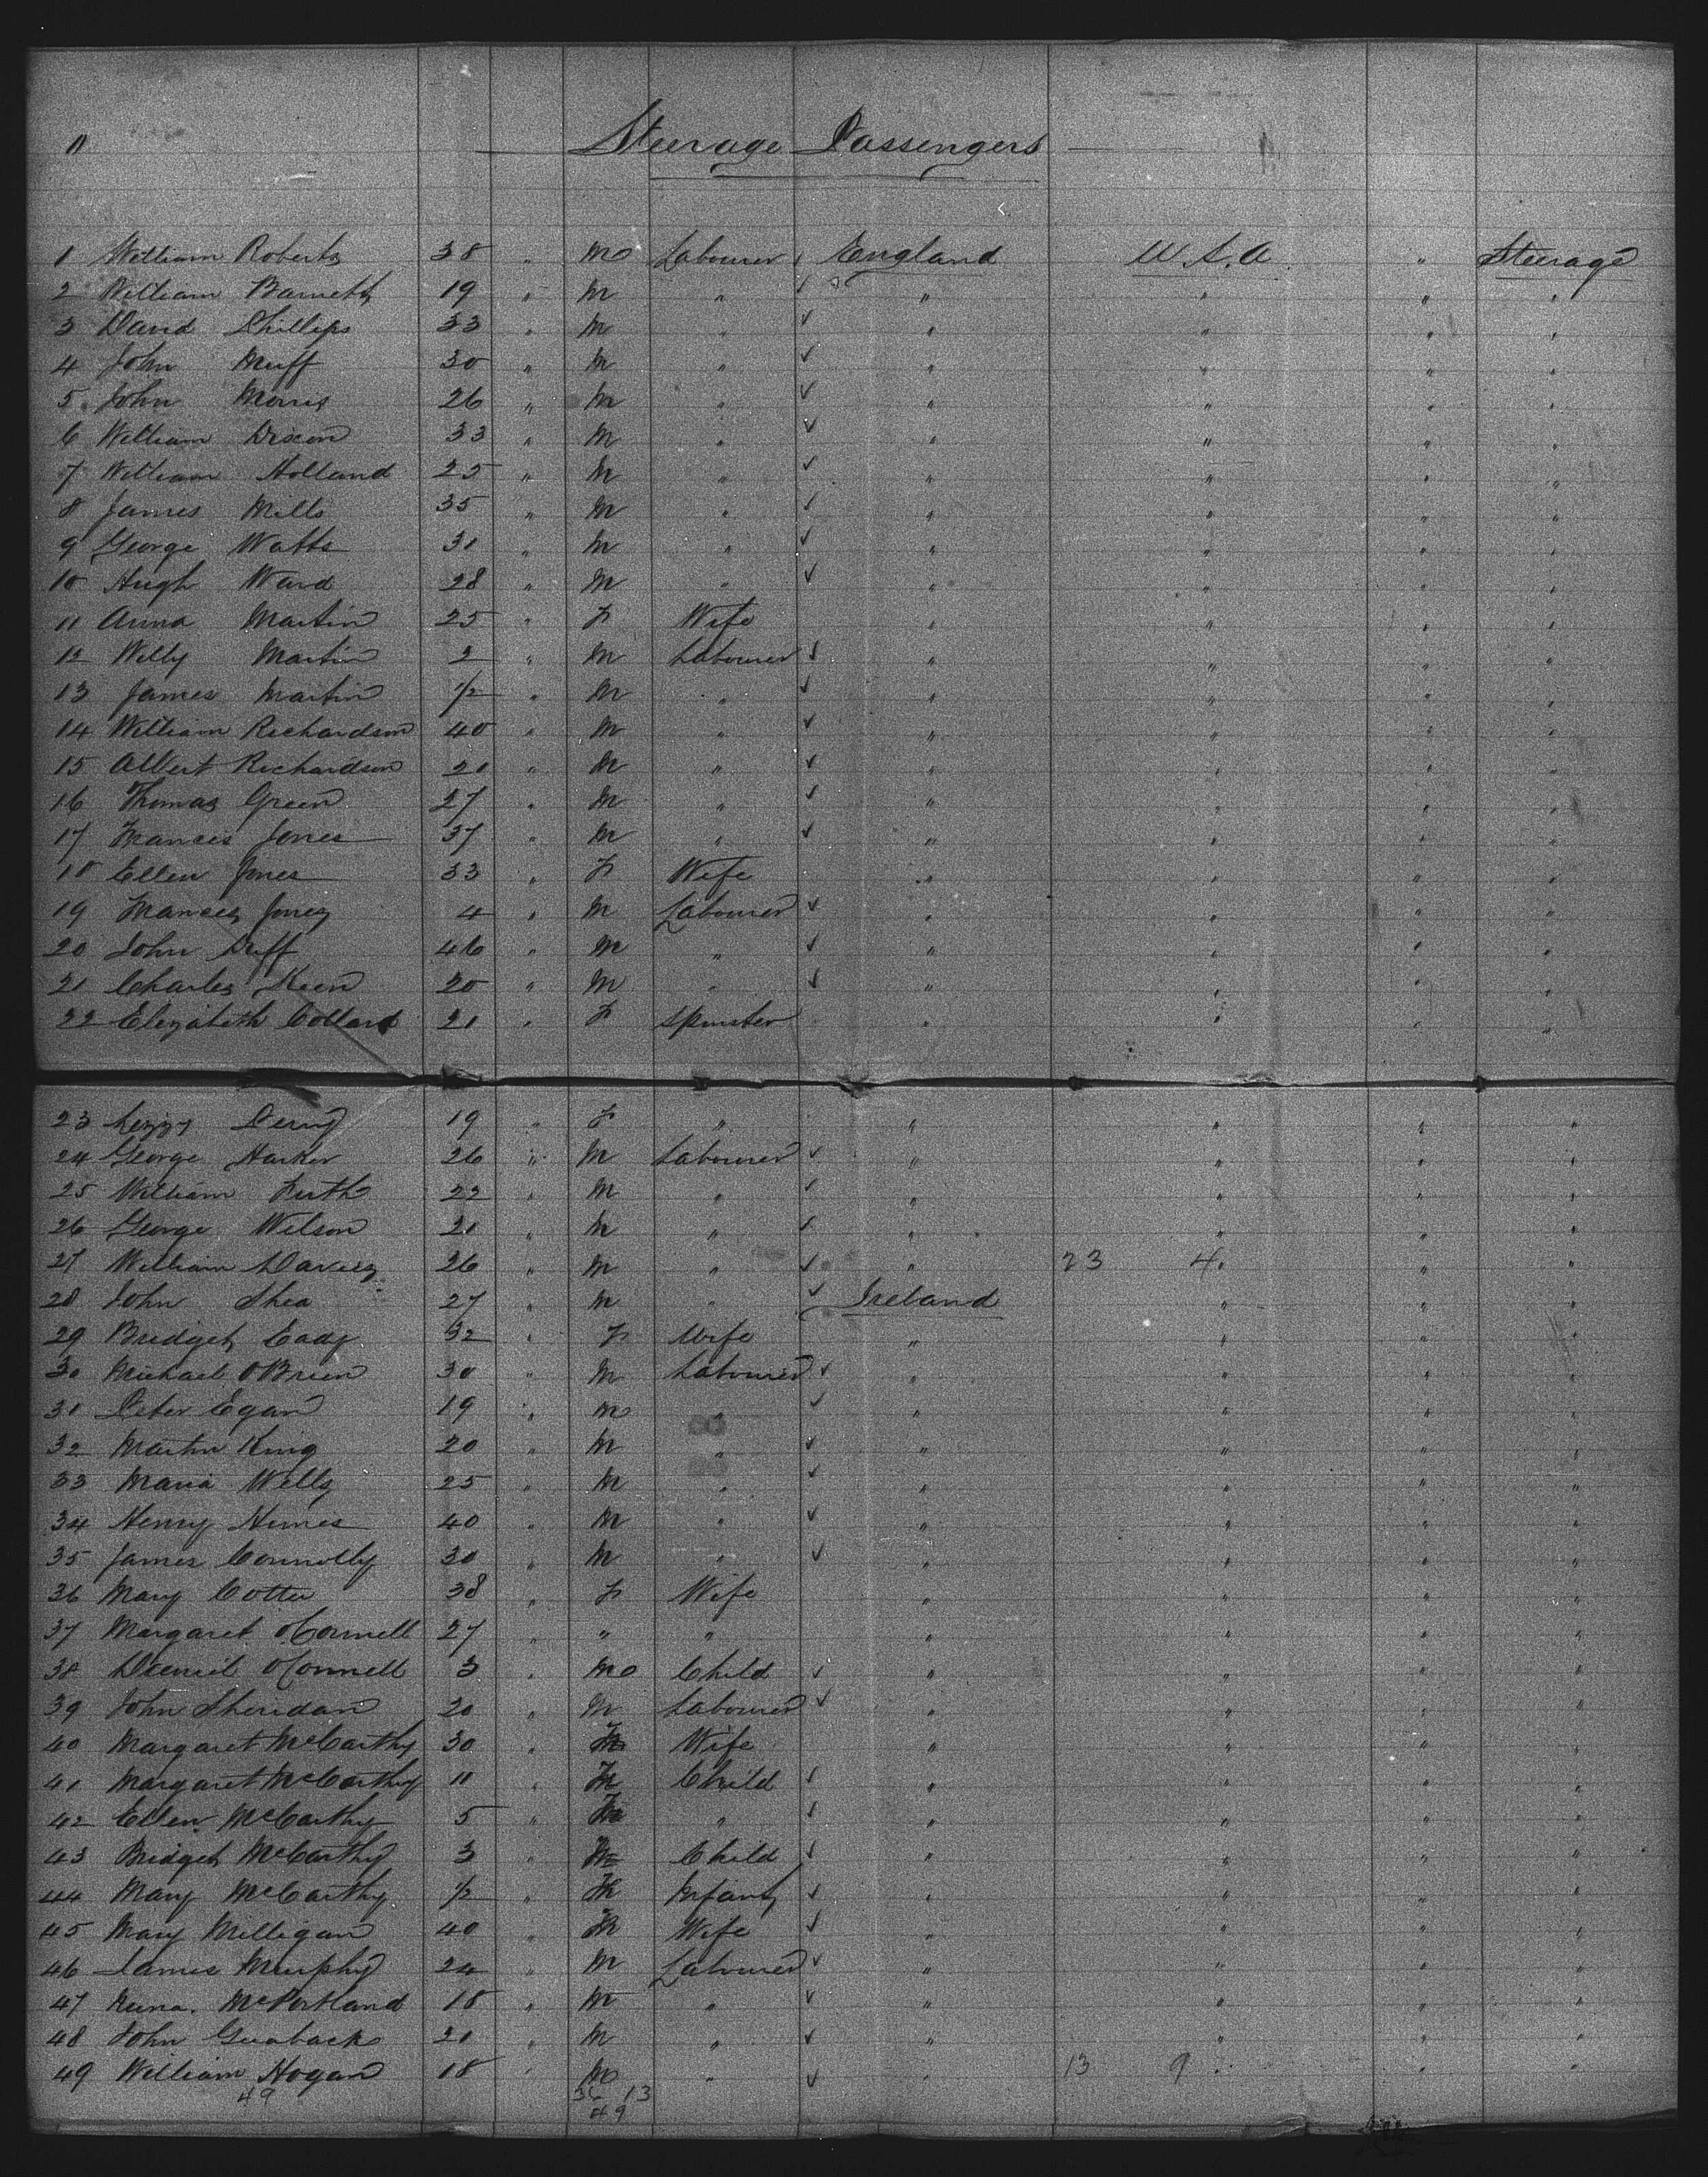 11
Steerage Passengers
1 William Roberts 38 " M Labourer England U.S.A. " Steerage
2 William Barnett 19 " M " " " " "
3 David Phillips 33 " M " " " " "
4 John Muff 30 " M " " " " "
5 John Morris 26 " M " " " " "
6 William Dixon 33 " M " " " " "
7 William Holland 25 " M " " " " "
8 James Mills 35 " M " " " " "
9 George Watts 31 " M " " " " "
10 Hugh Ward 28 " M " " " " "
11 Anna Martin 25 " F Wife " " " "
12 Willy Martin 2 " M Labourer " " " "
13 James Martin 1/2 " M " " " " "
14 William Richardson 40 " M " " " " "
15 Albert Richardson 21 " M " " " " "
16 Thomas Green 27 " M " " " " "
17 Frances Jones 37 " M " " " " "
18 Ellen Jones 33 " F Wife " " " "
19 Frances Jones 4 " M Labourer " " " "
20 John Duff 46 " M " " " " "
21 Charles Keen 20 " M " " " " "
22 Elizabeth Collard 21 " F Spinster " " " "
23 Lizzy 19 " F " " " " "
24 George Harker 26 " M Labourer " " " "
25 William Firth 22 " M " " " " "
26 George Wilson 21 " M " " " " "
27 William Davies 26 " M " " 23 4 " "
28 John Shea 27 " M " Ireland " " "
29 Bridget Eady 32 " F Wife " " " "
30 Michael OBrien 30 " M Labourer " " " "
31 Peter Egan 19 " M " " " " "
32 Martin King 20 " M " " " " "
33 Maria Wells 25 " M " " " " "
34 Henry Himes 40 " M " " " " "
35 James Connolly 30 " M " " " " "
36 Mary Cotter 38 " F Wife " " " "
37 Margaret OConnell 27 " " " " " " "
38 Daniel OConnell 3 " M Child " " " "
39 John Sheridan 20 " M Labourer " " " "
40 Margaret McCarthy 30 " F Wife " " " "
41 Margaret McCarthy 11 " F Child " " " "
42 Ellen McCarthy 5 " F " " " " "
43 Bridget McCarthy 3 " F Child " " " "
44 Mary McCarthy 1/2 " F Infant " " " "
45 Mary Milligan 40 " F Wife " " " "
46 James Murphy 24 " M Labourer " " " "
47 McPortland 18 " M " " " " "
48 John 21 " M " " " " "
49 William Hogan 18 " M " " 13 9 " "
49 36 13
49